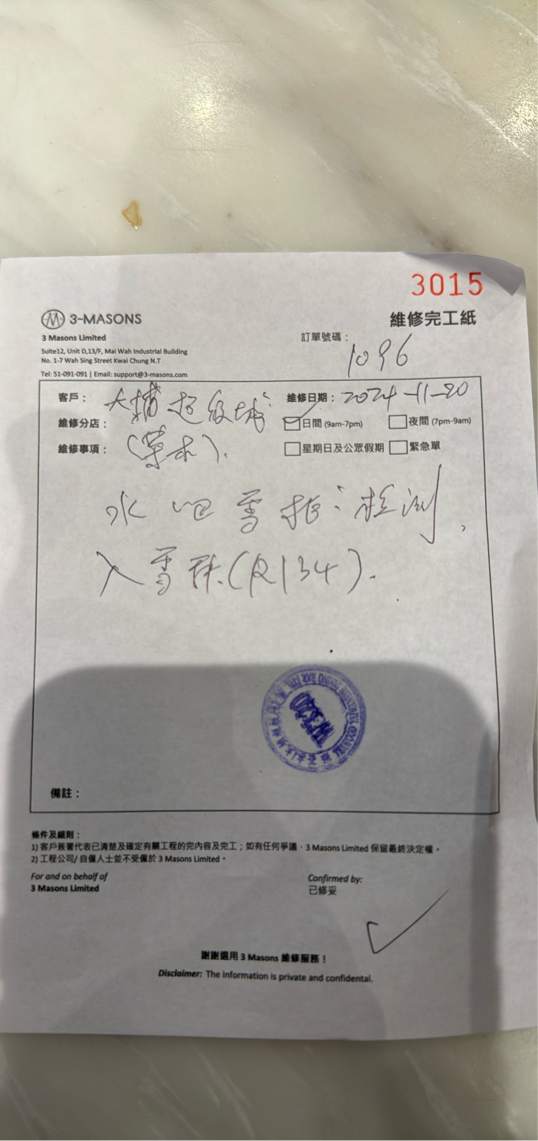 3015
3-MASONS
維修完工紙
3 Masons Limited
訂單號碼：
1096
Suite12, Unit D,13/F, Mai Wah Industrial Building
No. 1-7 Wah Sing Street Kwai Chung N.T
Tel: 51-091-091 | Email: support@3-masons.com
客戶： 大埔超級城
維修日期： 2024-11-20
維修分店：
日間 (9am-7pm) 夜間 (7pm-9am)
維修事項：
星期日及公眾假期 緊急單
水吧雪柜：檢測，
入雪種(R134).
備註：
條件及細則：
1) 客戶簽署代表已清楚及確定有關工程的完內容及完工；如有任何爭議，3 Masons Limited 保留最終決定權。
2) 工程公司/ 自僱人士並不受僱於 3 Masons Limited。
For and on behalf of
3 Masons Limited
Confirmed by:
已修妥
謝謝選用 3 Masons 維修服務！
Disclaimer: The information is private and confidental.